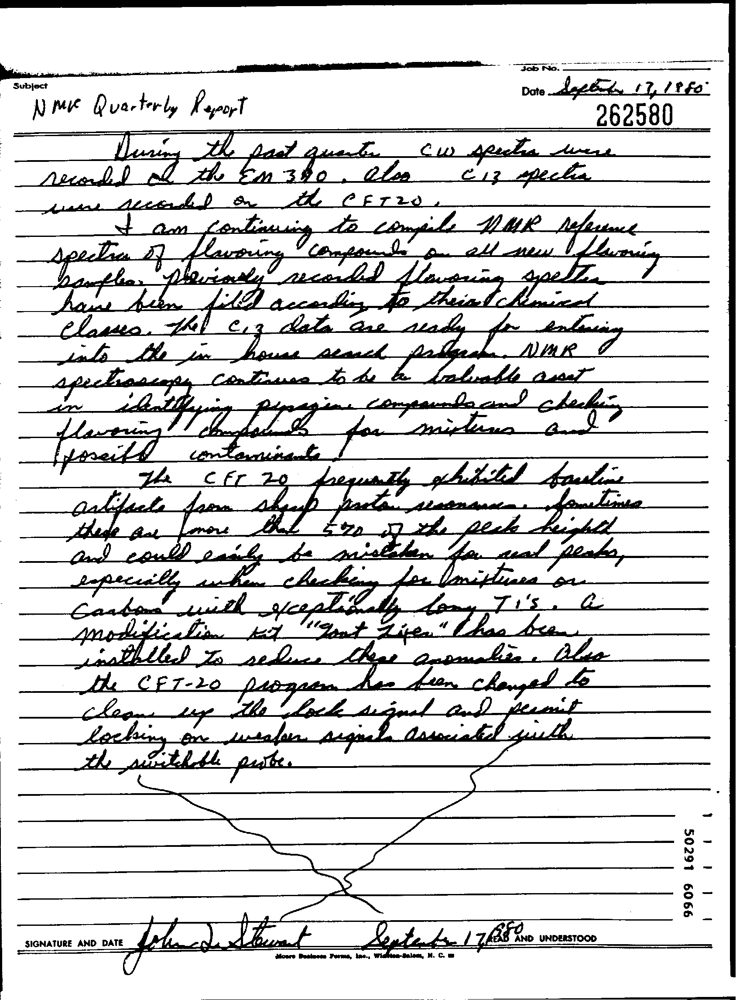 Job No.
Subject
NMR Quarterly Report
Date September 17, 1980
262580
During the past quarter CW spectra were
recorded on the EM 390. Also C13 spectra
were recorded on the CFT20.
I am continuing to compile NMR reference
spectra of flavoring compounds on all new flavoring
samples. Previously recorded flavoring spectra
have been filed according to their chemical
classes. The C13 data are ready for entering
into the in house search program. NMR
spectroscopy continues to be a valuable asset
in identifying pyrazine compounds and checking
flavoring compounds for mixtures and
possible contaminants.
The CFT 20 frequently exhibited baseline
artifacts from sharp proton resonances. Sometimes
these are more than 5% of the peak height
and could easily be mistaken for real peaks,
especially when checking for mixtures or
Carbons with exceptionally long T1's. A
modification kit " " has been
installed to reduce these anomalies. Also
the CFT-20 program has been changed to
clean up the lock signal and permit
locking on weaker signals associated with
the switchable probe.
50291 6066
SIGNATURE AND DATE John L. Stewart September 17, 1980 READ AND UNDERSTOOD
Moore Business Forms, Inc., Winston-Salem, N. C.